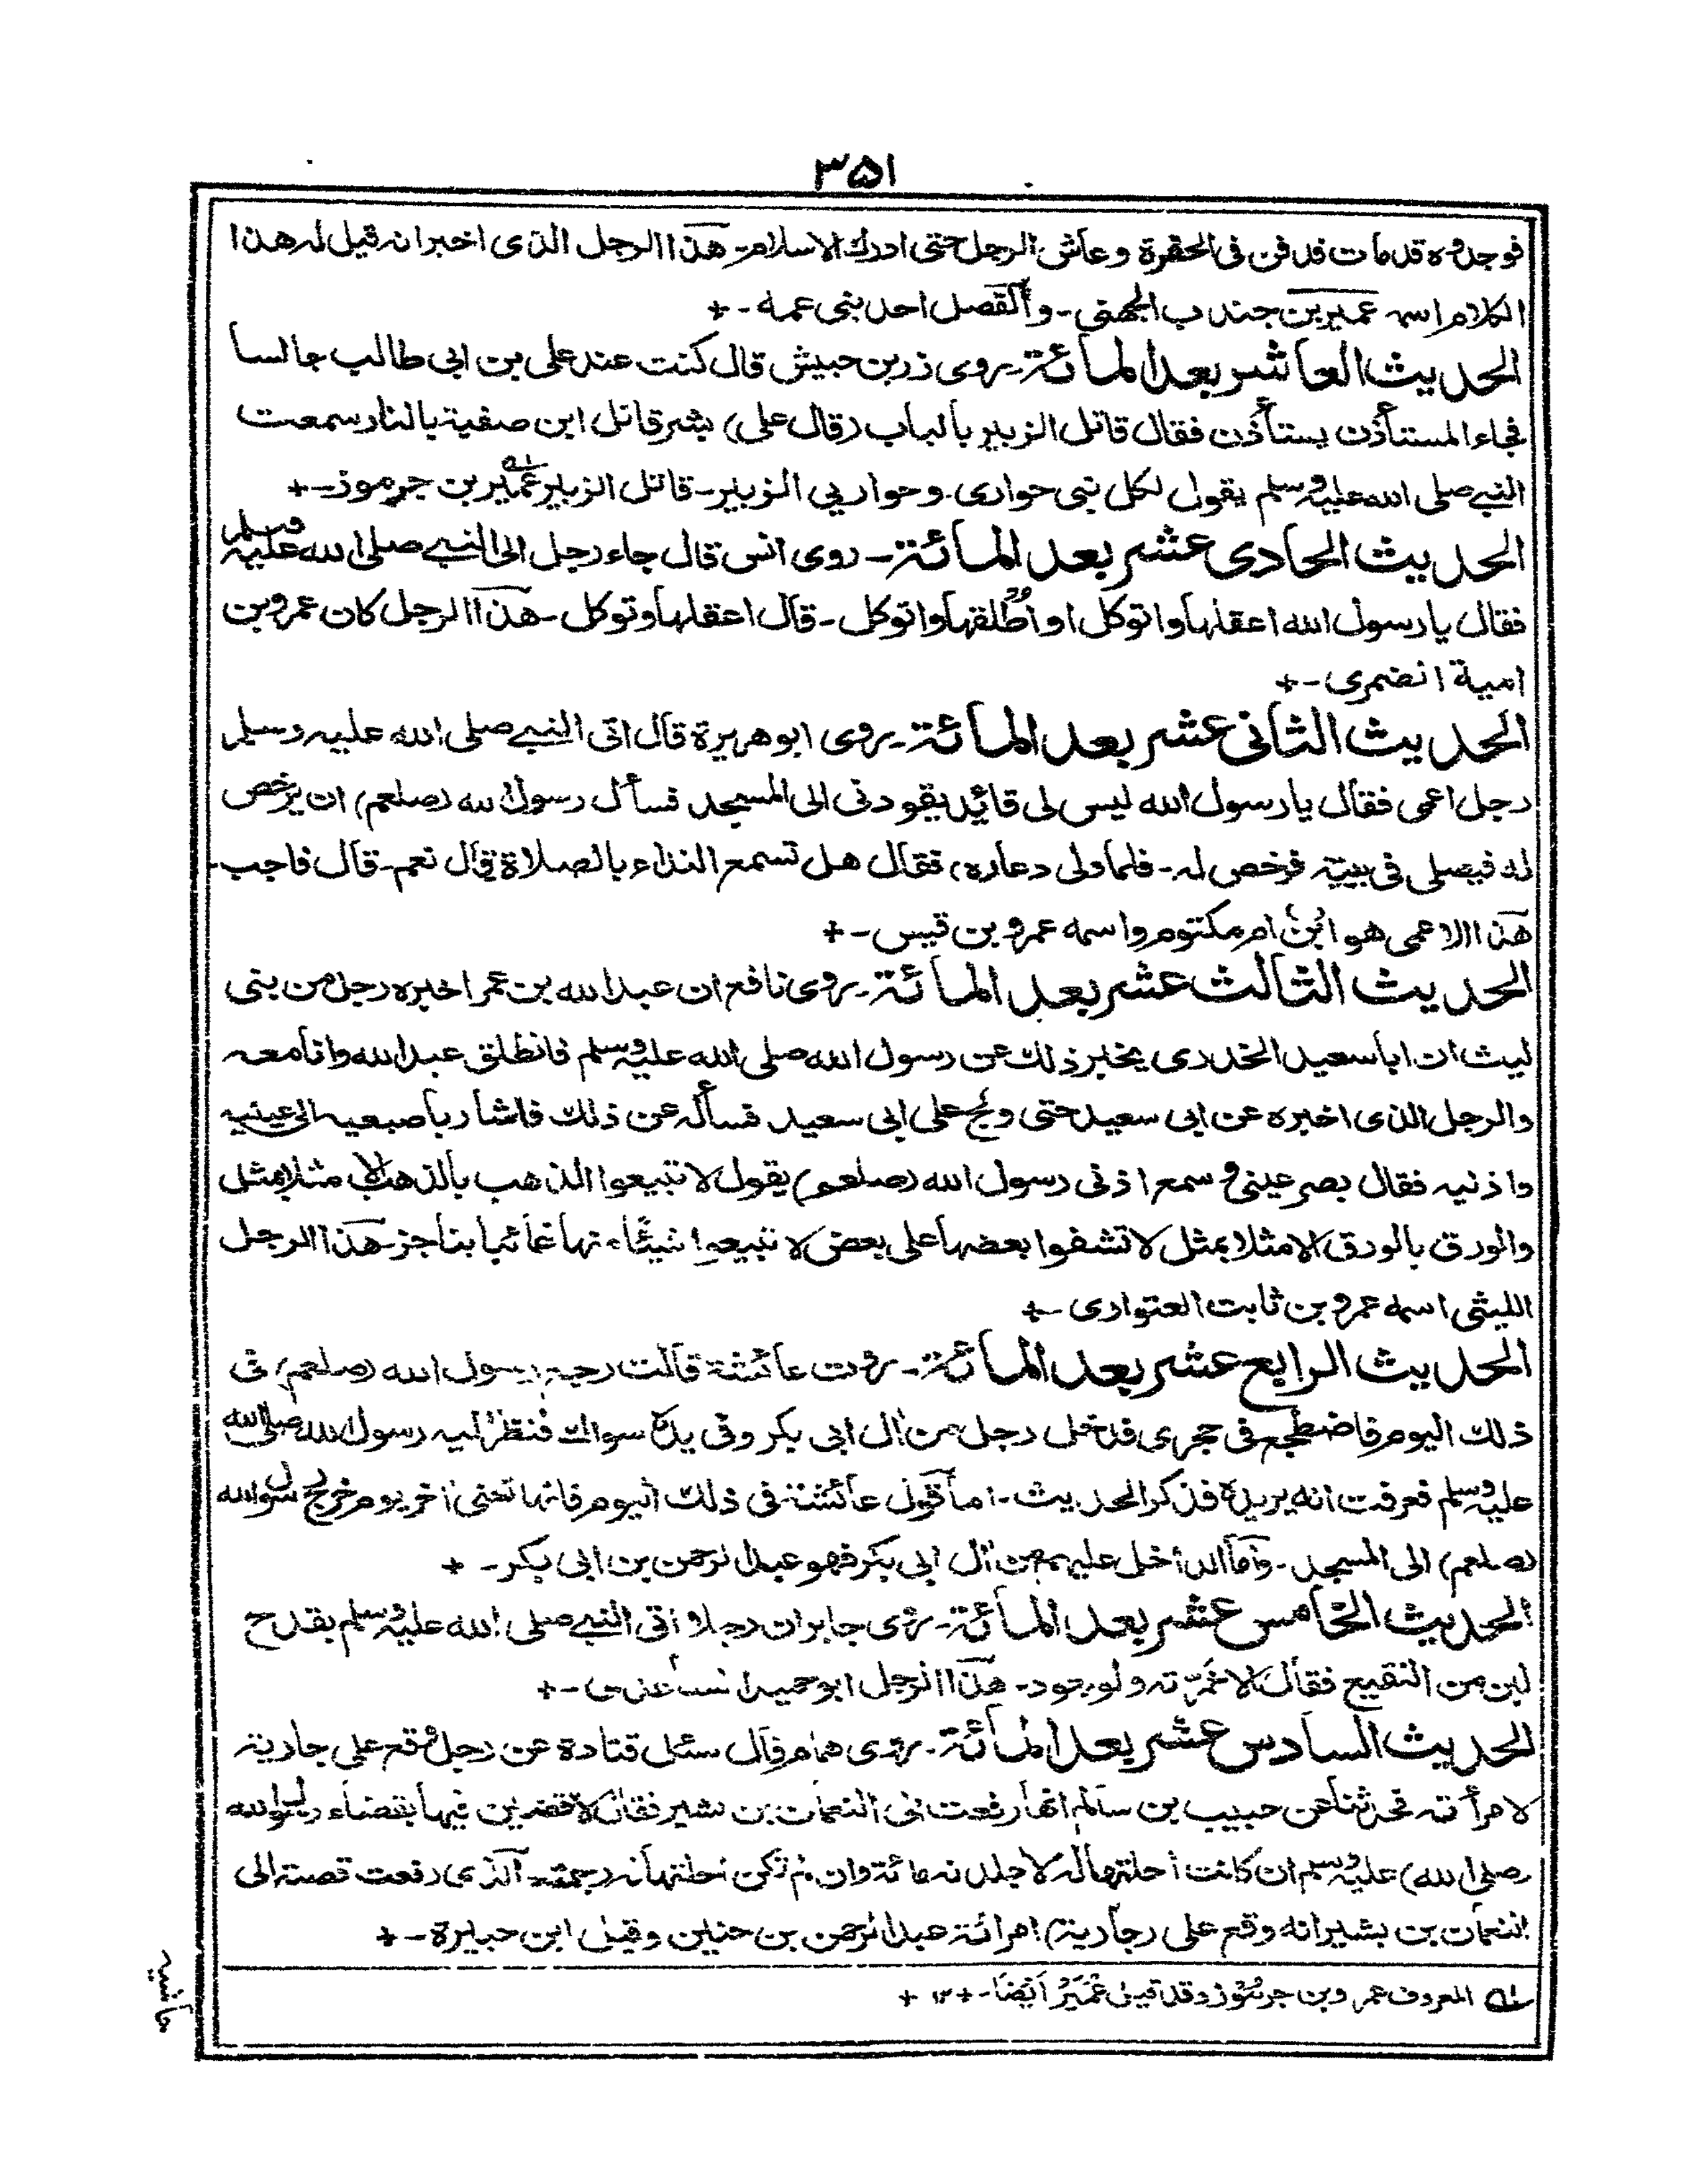 ۳۵۱
فوجدوه قد مات فدفن فى الحفرة وعاش الرجل حتى ادرك الاسلام۔ هذا الرجل الذى اخبر انه قيل له هذا
الكلام اسمه عمير بن جندب الجهنى۔ والقصل احد بنى عمه۔+
الحديث العاشر بعد المائة۔ روى زر بن حبيش قال كنت عند على بن ابى طالب جالسا
فجاء المستأذن يستأذن فقال قاتل الزبير بالباب (قال على) بشر قاتل ابن صفية بالنار سمعت
النبى صلى الله عليه وسلم يقول لكل نبى حوارى۔ وحواريى الزبير۔ قاتل الزبير عمير بن جرموز۔+
الحديث الحادى عشر بعد المائة۔ روى انس قال جاء رجل الى النبى صلى الله عليه وسلم
فقال يا رسول الله اعقلها واتوكل او اطلقها واتوكل۔ قال اعقلها وتوكل۔ هذا الرجل كان عمرو بن
امية الضمرى۔+
الحديث الثانى عشر بعد المائة۔ روى ابو هريرة قال اتى النبى صلى الله عليه وسلم
رجل اعمى فقال يا رسول الله ليس لى قائد يقودنى الى المسجد فسأل رسول الله (صلعم) ان يرخص
له فيصلى فى بيته فرخص له۔ فلما ولى دعاره) فقال هل تسمع النداء بالصلاة قال نعم۔ قال فاجب۔
هذا الاعمى هو ابن ام مكتوم واسمه عمرو بن قيس۔+
الحديث الثالث عشر بعد المائة۔ روى نافع ان عبد الله بن عمر اخبره رجل من بنى
ليث ان ابا سعيد الخدرى يخبر ذلك عن رسول الله صلى الله عليه وسلم فانطلق عبد الله وانا معه
والرجل الذى اخبره عن ابى سعيد حتى ولج على ابى سعيد فسأله عن ذلك فاشار باصبعيه الى عينيه
واذنيه فقال بصر عينى وسمع اذنى رسول الله (صلعم) يقول لا تبيعوا الذهب بالذهب الا مثلا بمثل
والورق بالورق الا مثلا بمثل لا تشفوا بعضها على بعض لا تبيعوا شيئاء نها غائبا بناجز۔ هذا الرجل
الليثى اسمه عمرو بن ثابت العتوارى۔+
الحديث الرابع عشر بعد المائة۔ روت عائشة قالت رجع رسول الله (صلعم) فى
ذلك اليوم فاضطجع فى حجرى فدخل رجل من ال ابى بكر وفى يده سواك فنظر اليه رسول الله صلى الله
عليه وسلم فعرفت انه يريده فذكر الحديث۔ اما قول عائشة فى ذلك اليوم فانها تعنى اخر يوم خرج رسول الله
(صلعم) الى المسجد۔ واما الداخل عليه من ال ابى بكر فهو عبد الرحمن بن ابى بكر۔+
الحديث الخامس عشر بعد المائة۔ روى جابر ان رجلا اتى النبى صلى الله عليه وسلم بقدح
لبن من النقيع فقال الا خمرته ولو بعود۔ هذا الرجل ابو حميد الساعدى۔+
الحديث السادس عشر بعد المائة۔ روى همام قال سئل قتادة عن رجل وقع على جارية
لامرأته فحدثنا عن حبيب بن سالم انها رفعت الى النعمان بن بشير فقال لاقضين فيها بقضاء رسول الله
(صلى الله) عليه وسلم ان كانت احلتها له لاجلدنه مائة وان لم تكن احلتها له رجمته۔ الذى رفعت قصته الى
النعمان بن بشير انه وقع على (جارية) امرائة عبد الرحمن بن حنين وقيل ابن حبيرة۔+
لـه المعروف عمرو بن جرموز وقد قيل عُمَير ايضا۔+ ۱۲ +
حاشيه